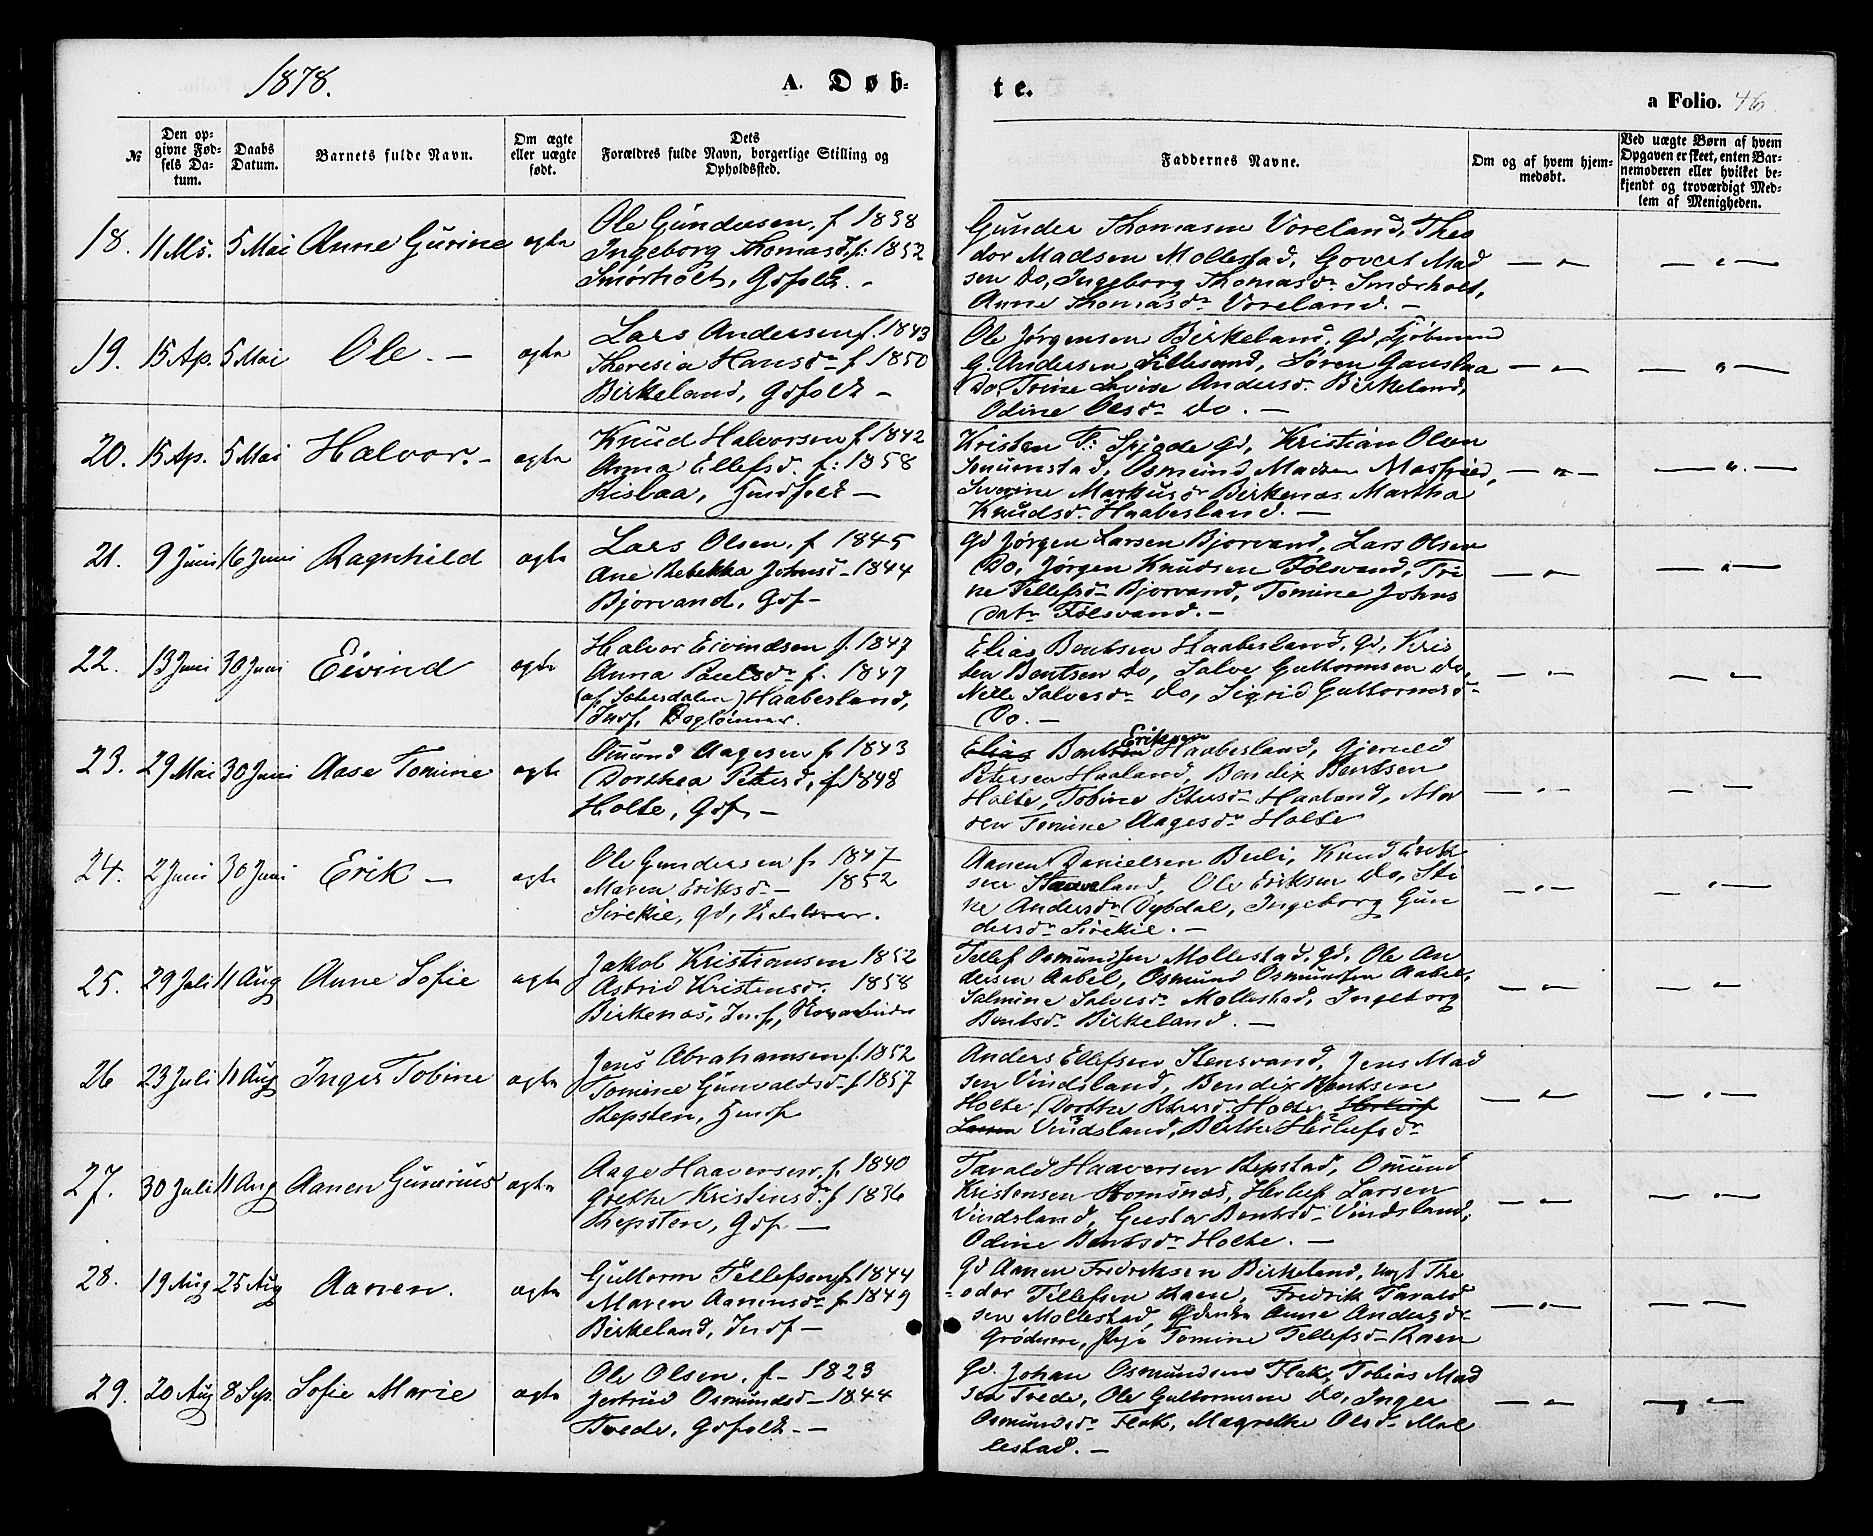 1878.
A. Døb-
te.
a Folio. 46
№
Den opgivne Fødsels Datum.
Daabs Datum.
Barnets fulde Navn.
Om ægte eller uægte født.
Dets Forældres fulde Navn, borgerlige Stilling og Opholdssted.
Faddernes Navne.
Om og af hvem hjemmedøbt.
Ved uægte Børn af hvem Opgaven er skeet, enten Barnemoderen eller hvilket bekjendt og troværdigt Medlem af Menigheden.
18. 11 Ms. 5 Mai Anne Gurine ægte
Ole Gundersen, f 1838
Ingeborg Thomasd. f: 1852
Smørholt, Gdfolk. -
Gunder Thomasen Voreland, Theo
dor Madsen Mollestad, Govert Mad
sen Do, Ingeborg Thomasdr Smørholt,
Anne Thomasdr Voreland. -
19. 15 Ap. 5 Mai Ole. - ægte
Lars Andersen f. 1843
Theresia Hansdr f 1850
Birkeland, Gdfolk -
Ole Jørgensen Birkeland, Gd, Kjøbmand
G. Andersen Lillesand, Søren
Do, Trine Lovise Andersd. Birkeland,
Odine Olsdr Do. -
20. 15 Ap. 5 Mai Halvor. - ægte
Knud Halvorsen f 1842
Anna Ellefsd. f: 1858
Risbaa, Hmdfolk -
Kristen T: Gd, Kristian Olsen
Osmund Madsen Mosfjeld,
Severine Markusdr Birkenæs Martha
Knudsdr Haabesland. -
21. 9 Juni 16 Juni Ragnhild ægte
Lars Olsen, f 1845
Ane Rebekka Johnsd - 1844
Bjorvand, Gdf -
Gd Jørgen Larsen Bjorvand, Lars Olsen
Do, Jørgen Knudsen Følsvand, Tri
ne Tellefsdr Bjorvand, Tomine Johns
datr Følsvand. -
22. 13 Juni 30 Juni Eivind ægte
Halvor Eivindsen f. 1847
Anna Paulsdr f. 1847
(af Sætersdalen) Haabesland,
Indf. Daglønner.
Elias Bentsen Haabesland, Gd, Kris
ten Bentsen Do, Salve Guttormsen Do,
Nille Salvesdr Do, Sigrid Guttormsd-
Do. -
23. 29 Mai 30 Juni Aase Tomine ægte
Omund Aagesen f 1843
Dorthea Petersd, f 1848
Holte, Gdf, -
Eriksen
Elias Bentsen Haabesland, Gjeruld
Petersen Haaland, Bendix Bentsen
Holte, Tobine Petersdr Haaland, Mo
ren Tomine Aagesdr Holte
24. 2 Juni 30 Juni Erik - ægte
Ole Gundersen f. 1847
Maren Eriksdr - 1852
Sirekil, Gd,
Aanen Danielsen Beli, Knud Erik
sen Staaveland, Ole Eriksen Do, Sti
ne Andersdr Dybdal, Ingeborg Gun
dersdr Sirekil. -
25. 29 Juli 11 Aug Anne Sofie ægte
Jakob Kristiansen 1852
Astrid Kristensd. 1858
Birkenæs, Indf,
Tellef Osmundsen Mollestad, Gd, Ole An
dersen Aabel, Osmund Osmundsen Aabel,
Salmine Salvesdr Mollestad, Ingeborg
Bentsdr Birkeland. -
26 23 Juli 11 Aug Inger Tobine ægte
Jens Abrahamsen f. 1852
Tomine Gunvaldsd - f 1857
Repsten, Hmdf
Anders Ellefsen Stensvand, Jens Mad
sen Vindsland, Bendix Bentsen
Holte, Dorthe Petersd. Holte, Herluf
Larsen Vindsland, Berthe Herlufsdr
27. 30 Juli 11 Aug Aanen Gunerius ægte
Aage Haaversen f. 1840
Grethe Kristensd. f 1836
Repsten, Gdf -
Tarald Haaversen Repstad, Omund
Kristensen Homsnæs, Herluf Larsen
Vindsland, Gusta Bentsd - Vindsland,
Odine Bentsdr Holte. -
28. 19 Aug 25 Aug Aanen. ægte
Guttorm Tellefsen f. 1844
Maren Aanensdr f 1849
Birkeland, Indf -
Gd Aanen Fredriksen Birkeland, Ungk The
odor Tellefsen Raen, Fredrik Tarald
sen Mollestad, Anne Andersd-
Grødum, Pige Tomine Tellefsd - Raen
29. 20 Aug 8 Sep. Sofie Marie ægte
Ole Olsen, f - 1823
Jertrud Osmundsd - 1844
Tvede, Gdfolk - -
Gd. Johan Osmundsen Flak, Tobias Mad
sen Tvede, Ole Guttormsen Do, Inger
Osmundsdr Flak, Magrethe Olsd - Mol
lestad. -